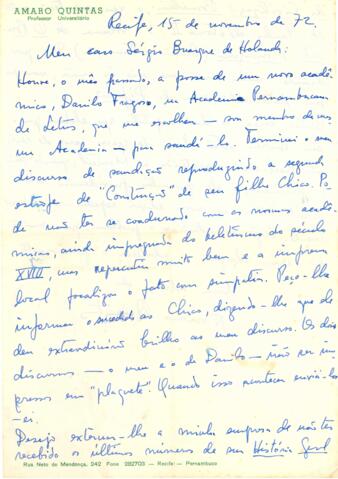 AMARO QUINTAS
Professor Universitário
Recife, 15 de novembro de 72.
Meu caro Sérgio Buarque de Holanda:
Houve, o mês passado, a posse de um novo acadê-
mico, Danilo Fragoso, na Academia Pernambucana
de Letras, que me escolheu — sou membro da
Academia — para saudá-lo. Terminei o meu
discurso de saudação reproduzindo a segunda
estrofe de "Construção" de seu filho Chico. Po-
de não ter se coadunado com as normas acadê-
micas, ainda impregnadas do beletrismo do século
XVIII, mas repercutiu muito bem e a imprensa
local focalizou o fato com simpatia. Peço-lhe
informar o sucedido ao Chico, dizendo-lhe que ele
deu extraordinário brilho ao meu discurso. Os dois
discursos — o meu e o de Danilo — vão ser im-
pressos em "plaquete". Quando isso acontecer enviá-los-
-ei.
Desejo externar-lhe a minha surpresa de não ter
recebido os últimos números de sua História Geral
Rua Neto de Mendonça, 242 Fone 282703 — Recife — Pernambuco